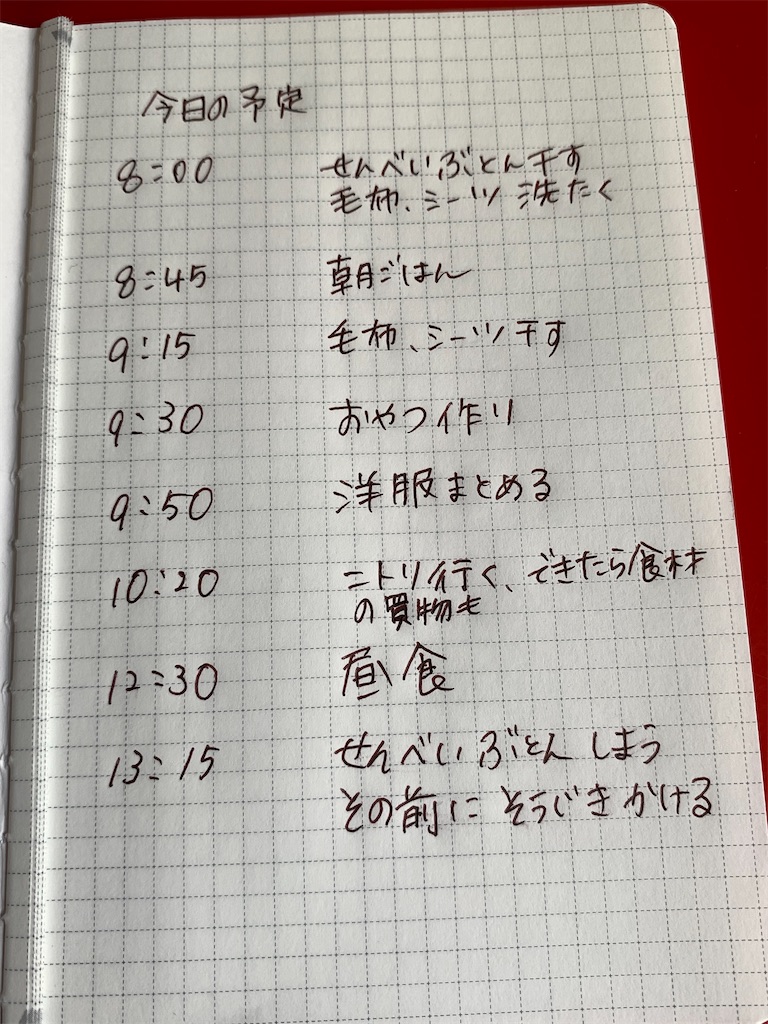 今日の予定
8:00 せんべいぶとん干す
毛布、シーツ 洗たく
8:45 朝ごはん
9:15 毛布、シーツ干す
9:30 おやつ作り
9:50 洋服まとめる
10:20 ニトリ行く、できたら食材
の買物も
12:30 昼食
13:15 せんべいぶとん しまう
その前に そうじき かける